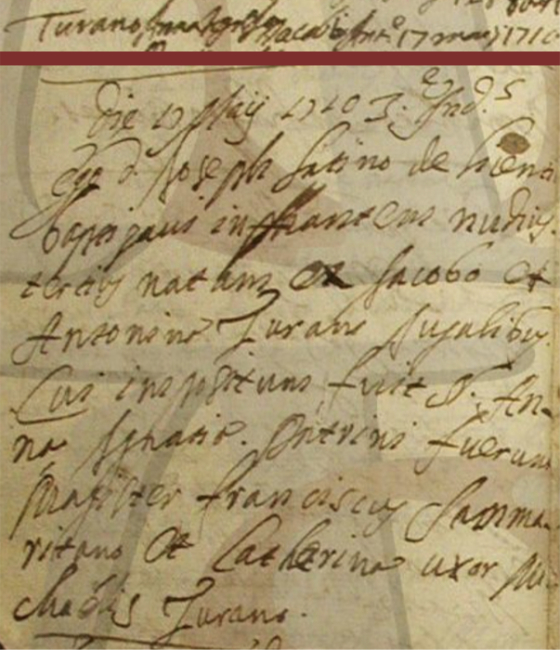 Turano Giacobbi Ant.º 17 may 1710
Die 17 Maij 1710 3. Ind.s
ego D. Joseph Latino de
baptizavi infantem nudius
tertius natam ex Jacobo et
Antonina Turano Jugalibus
Cui impositum fuit S. An-
na Ignatia. Patrini fuerunt
Magister Franciscus Samma-
ritano et Catherina uxor Mi-
chaelis Turano.